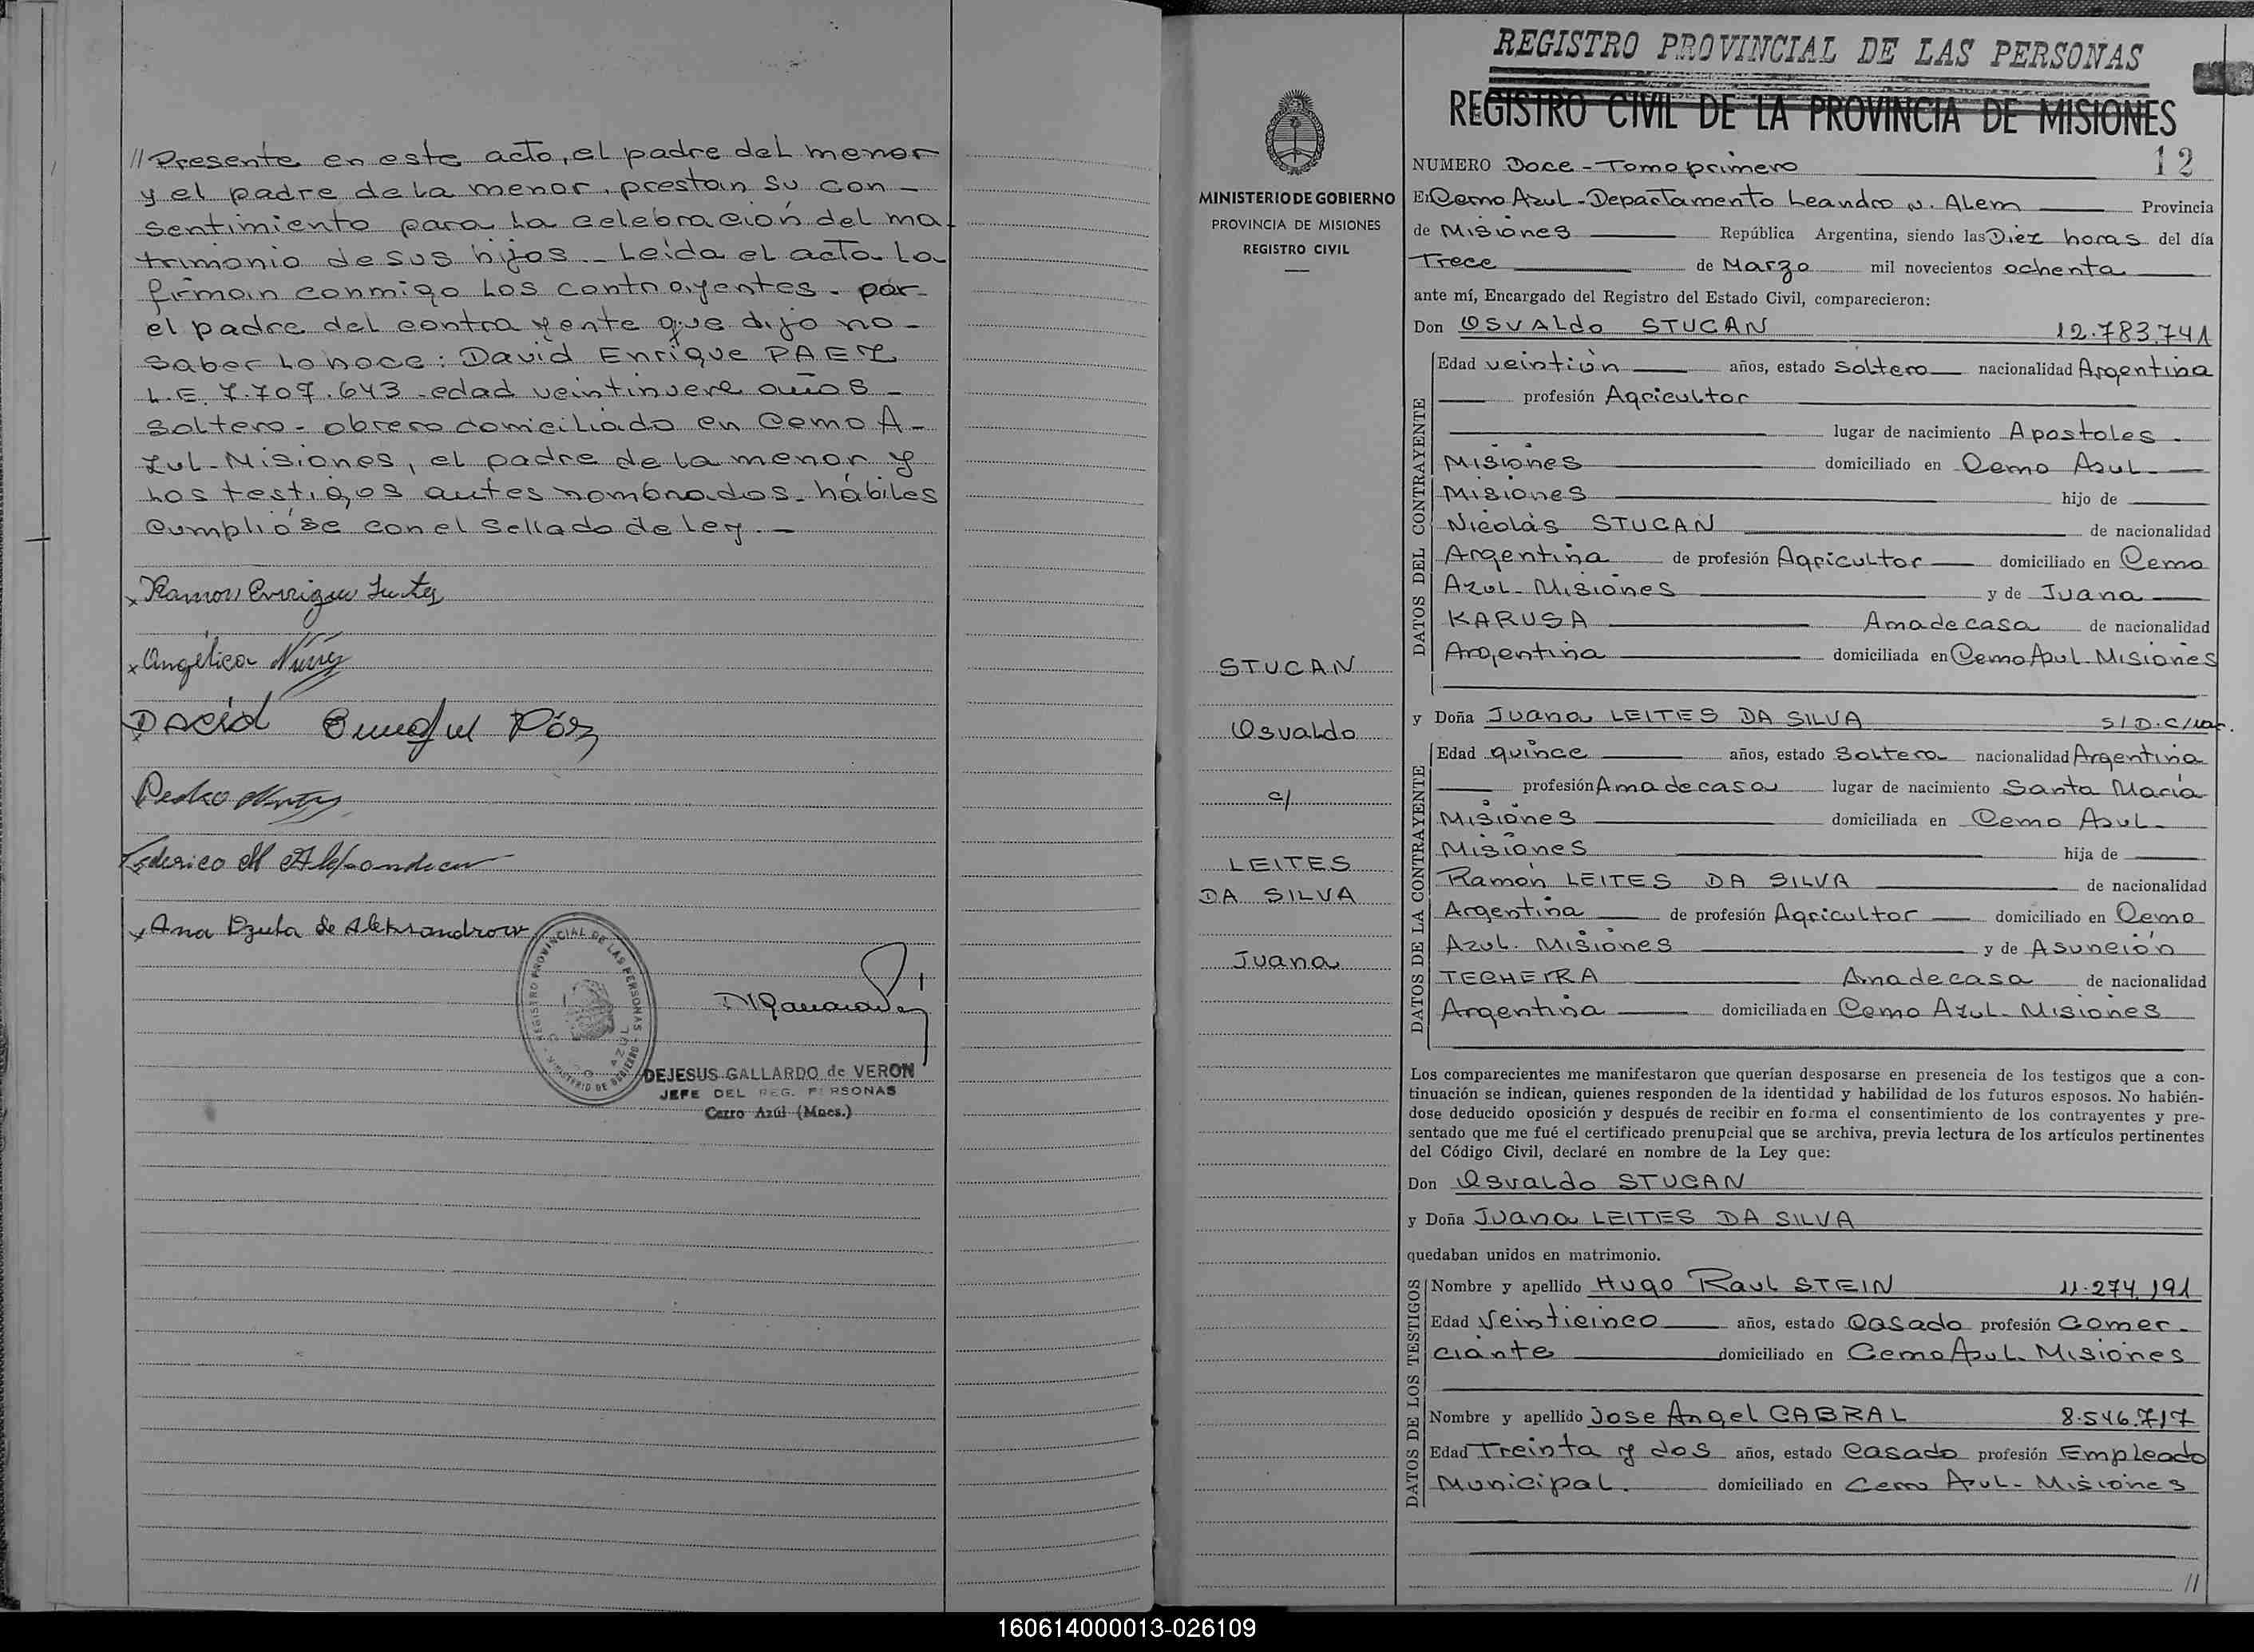 // Presente en este acto, el padre del menor
y el padre de la menor, prestan su con-
sentimiento para la celebración del ma-
trimonio de sus hijos.- Leída el acta la
firman conmigo los contrayentes - por
el padre del contrayente que dijo no-
saber lo hace: David Enrique PAEZ
L.E. 7.707.643 - edad veintinueve años -
Soltero - obrero domiciliado en Cerro A-
zul - Misiones, el padre de la menor y
los testigos antes nombrados - hábiles
Cumplióse con el Sellado de Ley. -
x Ramon Enrique
x Angélica
David
Pedro
Federico
x Ana Dzuba de Aleksandrow
REGISTRO PROVINCIAL DE LAS PERSONAS
MINISTERIO DE GOBIERNO
DEJESUS GALLARDO de VERON
JEFE DEL REG. PERSONAS
Cerro Azúl (Mnes.)
MINISTERIO DE GOBIERNO
PROVINCIA DE MISIONES
REGISTRO CIVIL
STUCAN
Osvaldo
c/
LEITES
DA SILVA
Juana
REGISTRO PROVINCIAL DE LAS PERSONAS
REGISTRO CIVIL DE LA PROVINCIA DE MISIONES
NUMERO Doce - Tomo primero 12
En Cerro Azul - Departamento Leandro N. Alem Provincia
de Misiones República Argentina, siendo las Diez horas del día
Trece de Marzo mil novecientos ochenta
ante mí, Encargado del Registro del Estado Civil, comparecieron:
Don Osvaldo STUCAN 12.783.741
DATOS DEL CONTRAYENTE
Edad veintiún años, estado Soltero nacionalidad Argentina
profesión Agricultor
lugar de nacimiento Apostoles -
Misiones domiciliado en Cerro Azul -
Misiones hijo de
Nicolás STUCAN de nacionalidad
Argentina de profesión Agricultor domiciliado en Cerro
Azul - Misiones y de Juana
KARUSA Ama de casa de nacionalidad
Argentina domiciliada en Cerro Azul - Misiones
y Doña Juana LEITES DA SILVA S/D. C/nac.
DATOS DE LA CONTRAYENTE
Edad quince años, estado Soltera nacionalidad Argentina
profesión Ama de casa lugar de nacimiento Santa María
Misiones domiciliada en Cerro Azul -
Misiones hija de
Ramón LEITES DA SILVA de nacionalidad
Argentina de profesión Agricultor domiciliado en Cerro
Azul - Misiones y de Asunción
TECHEIRA Ama de casa de nacionalidad
Argentina domiciliada en Cerro Azul - Misiones
Los comparecientes me manifestaron que querían desposarse en presencia de los testigos que a con-
tinuación se indican, quienes responden de la identidad y habilidad de los futuros esposos. No habién-
dose deducido oposición y después de recibir en forma el consentimiento de los contrayentes y pre-
sentado que me fué el certificado prenupcial que se archiva, previa lectura de los artículos pertinentes
del Código Civil, declaré en nombre de la Ley que:
Don Osvaldo STUCAN
y Doña Juana LEITES DA SILVA
quedaban unidos en matrimonio.
DATOS DE LOS TESTIGOS
Nombre y apellido Hugo Raul STEIN 11.274.191
Edad Veinticinco años, estado Casado profesión Comer-
ciante domiciliado en Cerro Azul - Misiones
Nombre y apellido Jose Angel CABRAL 8.546.717
Edad Treinta y dos años, estado Casado profesión Empleado
Municipal. domiciliado en Cerro Azul - Misiones
//
160614000013-026109